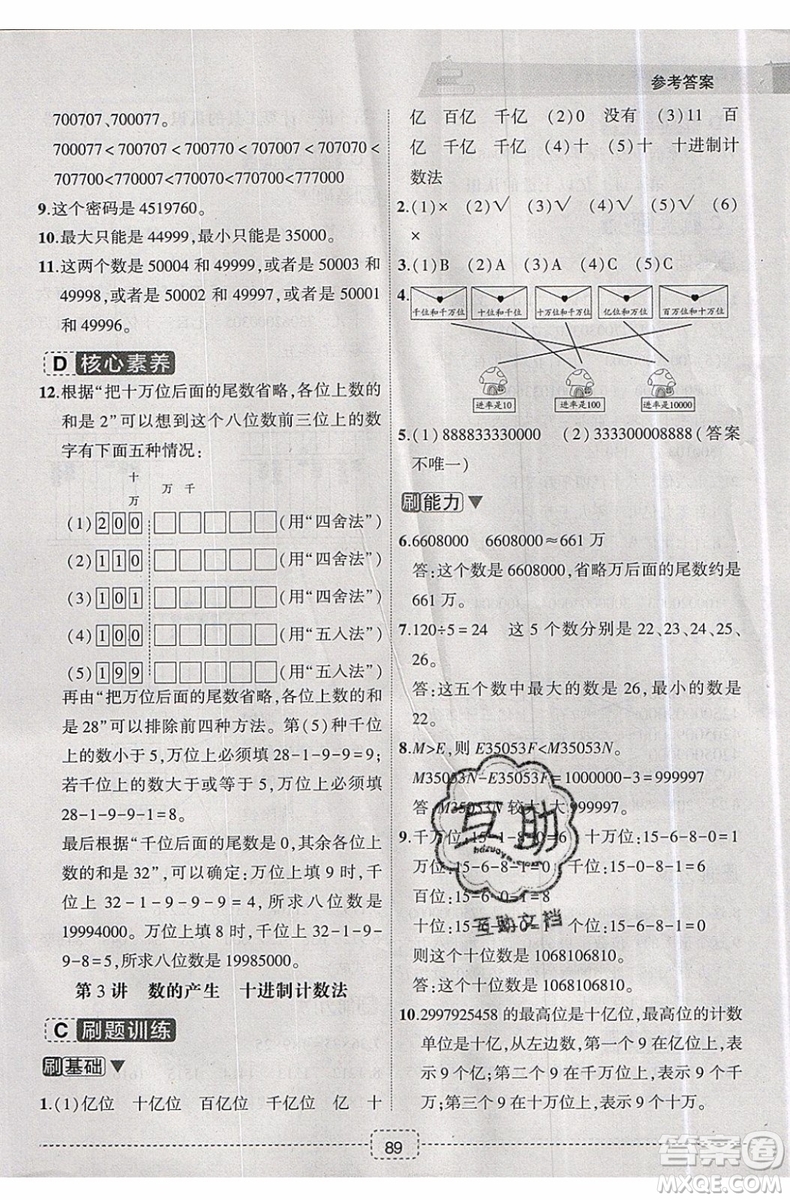 参考答案
700707、700077。
700077<700707<707007<707070<
707700<770007<770070<777000
9.这个密码是4519760。
10.最大只能是44999,最小只能是35000。
11.这两个数是50004和49999,或者是50003和
49998,或者是50002和49997,或者是50001
和49996。
D 核心素养
12.根据“把十万位后面的尾数省略,各位上数的
和是2”可以想到这个八位数前三位上的数
字有下面五种情况:
十万 万 千
(1)200 (用“四舍法”)
(2)110 (用“四舍法”)
(3)101 (用“四舍法”)
(4)100 (用“五入法”)
(5)199 (用“五入法”)
再由“把万位后面的尾数省略,各位上数的和
是28”可以排除前四种方法。第(5)种千位
上的数小于5,万位上必须填28-1-9-9=9;
若千位上的数大于或等于5,万位上必须填
28-1-9-9-1=8。
最后根据“千位后面的尾数是0,其余各位上
数的和是32”,可以确定:万位上填9时,千
位上32-1-9-9-9=4,所求八位数是
19994000。万位上填8时,千位上是
5,所求八位数是19985000。
第3讲 数的产生 十进制计数法
C 刷题训练
刷基础
1.(1)亿位 十亿位 百亿位 千亿位 亿 十
亿 百亿 千亿 (2)0 没有 (3)11 百
亿 千亿 千亿 (4)十 (5)十 十进制计
数法
2.(1)× (2)√ (3)√ (4)√ (5)√ (6)
×
3.(1)B (2)A (3)A (4)C (5)C
4.
千位和千万位 十位和千位 十万位和千万位 亿位和万位 百万位和十万位
进率是10 进率是100 进率是10000
5.(1)888833330000 (2)333300008888(答案
不唯一)
刷能力
6.6608000 6608000≈661万
答:这个数是6608000,省略万后面的尾数约是
661万。
7.120÷5=24 这5个数分别是22、23、24、25、
26。
答:这五个数中最大的数是26,最小的数是
22。
8.M>E,则E35053F<M35053N。
M35053N-E35053F=1000000-3=999997
答:M35053N较大,大999997。
9.千万位:15-1-8-0=6 十万位:15-6-8-0=1
万位:15-6-1-8=0 千位:15-6-1-0=8
百位:15-6-0-8=1
十位:15-6-8-1=0 个位:15-6-8-1=0
则这个十位数是1068106810。
答:这个十位数是1068106810。
10.2997925458的最高位是十亿位,最高位的计数
单位是十亿,从左边数,第一个9在亿位,表
示9个亿;第二个9在千万位,表示9个千
万;第三个9在百万位,表示9个百万。
互助
hdzuoye.com
互助文档
89
答案圈
MXQE.COM